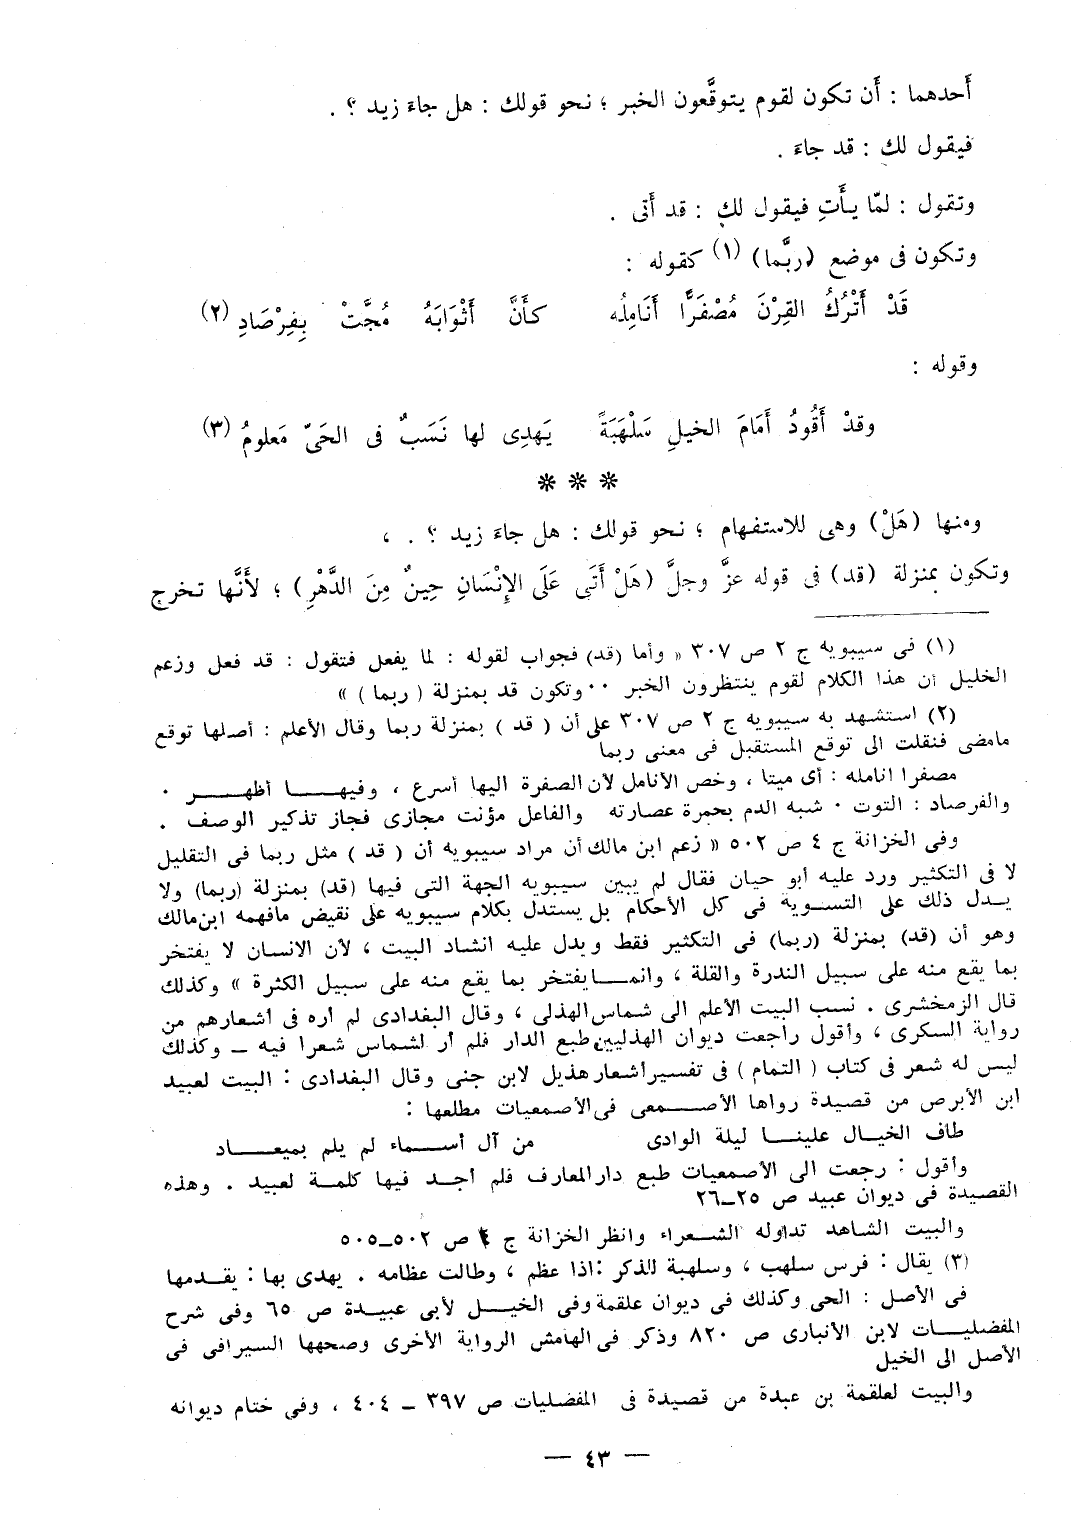 أَحدهما : أَن تكون لقوم يتوقَّعون الخبر ؛ نحو قولك : هل جاءَ زيد ؟ .
فيقول لك : قد جاءَ .
وتقول : لمّا يأْتِ فيقول لك : قد أَتى .
وتكون فى موضع (ربَّما) (١) كقوله :
قَدْ أَتْرُكُ القِرْنَ مُصْفَرًّا أَنَامِلُه كأَنَّ أَثْوَابَهُ مُجَّتْ بِفِرْصَادِ (٢)
وقوله :
وقدْ أَقُودُ أَمَامَ الخيلِ سَلْهَبَةً يَهدِى لها نَسَبٌ فى الحَىِّ مَعلومُ (٣)
* * *
ومنها (هَلْ) وهى للاستفهام ؛ نحو قولك : هل جاءَ زيد ؟ . ،
وتكون بمنزلة (قد) فى قوله عزَّ وجلَّ (هَلْ أَتَى عَلَى الإِنْسَانِ حِينٌ مِنَ الدَّهْرِ) ؛ لأَنَّها تخرج
(١) فى سيبويه ج ٢ ص ٣٠٧ « وأما (قد) فجواب لقوله : لما يفعل فتقول : قد فعل وزعم
الخليل أن هذا الكلام لقوم ينتظرون الخبر ٠٠ وتكون قد بمنزلة ( ربما ) »
(٢) استشهد به سيبويه ج ٢ ص ٣٠٧ على أن ( قد ) بمنزلة ربما وقال الأعلم : أصلها توقع
مامضى فنقلت الى توقع المستقبل فى معنى ربما
مصفرا انامله : أى ميتا ، وخص الأنامل لأن الصفرة اليها أسرع ، وفيهـــا أظهـــر .
والفرصاد : التوت . شبه الدم بحمرة عصارته والفاعل مؤنث مجازى فجاز تذكير الوصف .
وفى الخزانة ج ٤ ص ٥٠٢ « زعم ابن مالك أن مراد سيبويه أن ( قد ) مثل ربما فى التقليل
لا فى التكثير ورد عليه أبو حيان فقال لم يبين سيبويه الجهة التى فيها (قد) بمنزلة (ربما) ولا
يـدل ذلك على التســوية فى كل الأحكام بل يستدل بكلام سيبويه على نقيض مافهمه ابن مالك
وهو أن (قد) بمنزلة (ربما) فى التكثير فقط ويدل عليه انشاد البيت ، لأن الانسان لا يفتخر
بما يقع منه على سبيل الندرة والقلة ، وانمــا يفتخر بما يقع منه على سبيل الكثرة » وكذلك
قال الزمخشرى . نسب البيت الأعلم الى شماس الهذلى ، وقال البغدادى لم أره فى أشعارهم من
رواية السكرى ، وأقول راجعت ديوان الهذليين طبع الدار فلم أر لشماس شعرا فيه ــ وكذلك
ليس له شعر فى كتاب ( التمام ) فى تفسير أشعار هذيل لابن جنى وقال البغدادى : البيت لعبيد
ابن الأبرص من قصيدة رواها الأصـــمعى فى الأصمعيات مطلعها :
طاف الخيـال علينــا ليلة الوادى من آل أســماء لم يلم بميعـــاد
وأقول : رجعت الى الأصمعيات طبع دار المعارف فلم أجـد فيها كلمـة لعبيد . وهذه
القصيدة فى ديوان عبيد ص ٢٥ــ٢٦
والبيت الشاهد تداوله الشـعراء وانظر الخزانة ج ٤ ص ٥٠٢ــ٥٠٥
(٣) يقال : فرس سلهب ، وسلهبة للذكر : اذا عظم ، وطالت عظامه . يهدى بها : يقـدمها
فى الأصل : الحى وكذلك فى ديوان علقمة وفى الخيـل لأبى عبيـدة ص ٦٥ وفى شرح
المفضليــات لابن الأنبارى ص ٨٢٠ وذكر فى الهامش الرواية الأخرى وصححها السيرافى فى
الأصل الى الخيل
والبيت لعلقمة بن عبدة من قصيدة فى المفضليات ص ٣٩٧ ــ ٤٠٤ ، وفى ختام ديوانه
— ٤٣ —